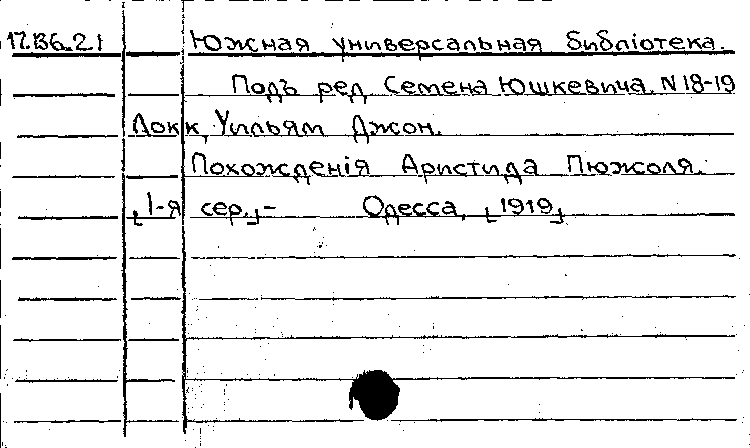 17.136.2.1 Южная универсальная библіотека.
Подъ ред. Семена Юшкевича. N 18-19
Локк, Уильям Джон.
Похожденія Аристида Пюжоля.
[1-я сер.]- Одесса, [1919]